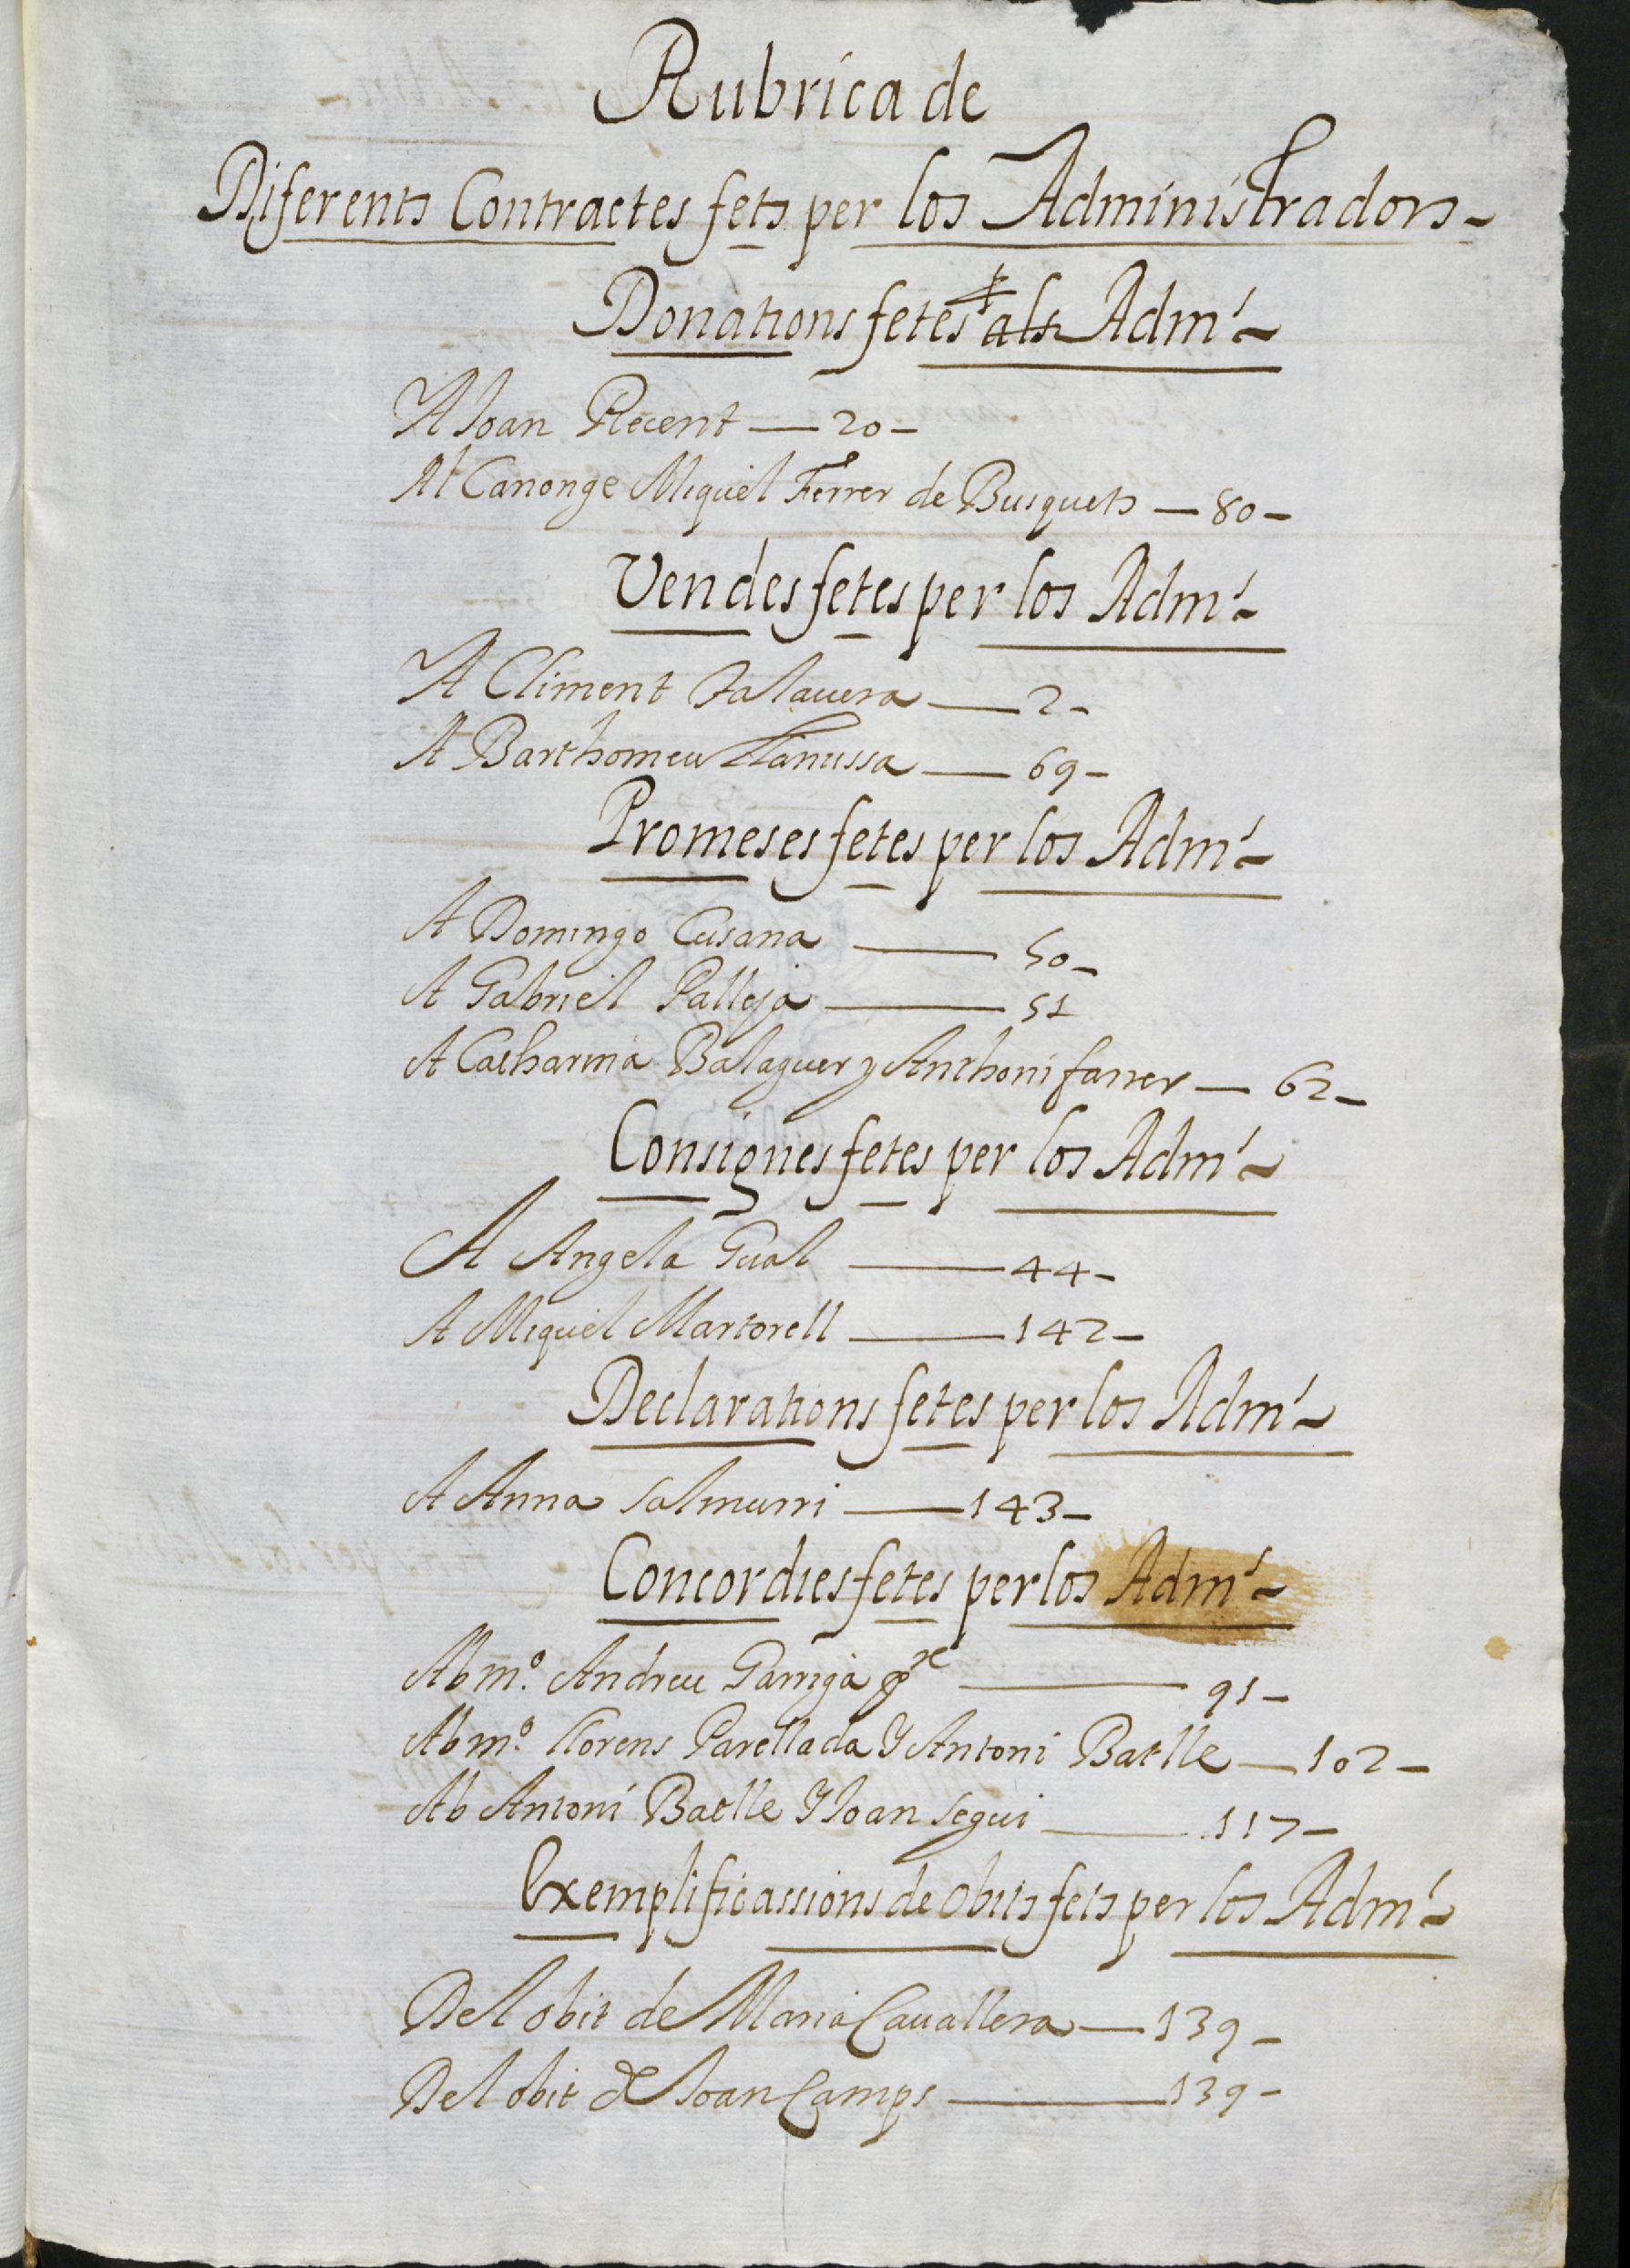 Rubrica de
Diferents Contractes fets per los Administradors
Donations fetes als Adm.
A Joan Recent — 20 —
Al Canonge Miquel Ferrer de Busquets — 80 —
Vendes fetes per los Adm.
A Climent Talavera — 2 —
A Barthomeu Llanussa — 69 —
Promeses fetes per los Adm.
A Domingo Cusana — 50 —
A Gabriel Palleja — 51
A Catharina Balaguer y Anthoni farrer — 62 —
Consignes fetes per los Adm.
A Angela Gual — 44 —
A Miquel Martorell — 142 —
Declarations fetes per los Adm.
A Anna Salmurri — 143 —
Concordies fetes per los Adm.
Ab mº. Andreu Garriga pre — 91 —
Ab mº. Llorens Parellada Y Antoni Batlle — 102 —
Ab Antoni Batlle Y Joan Segui — 117 —
Exemplificassions de obits fets per los Adm.
Del obit de Maria Cavallera — 139 —
Del obit de Joan Camps — 139 —